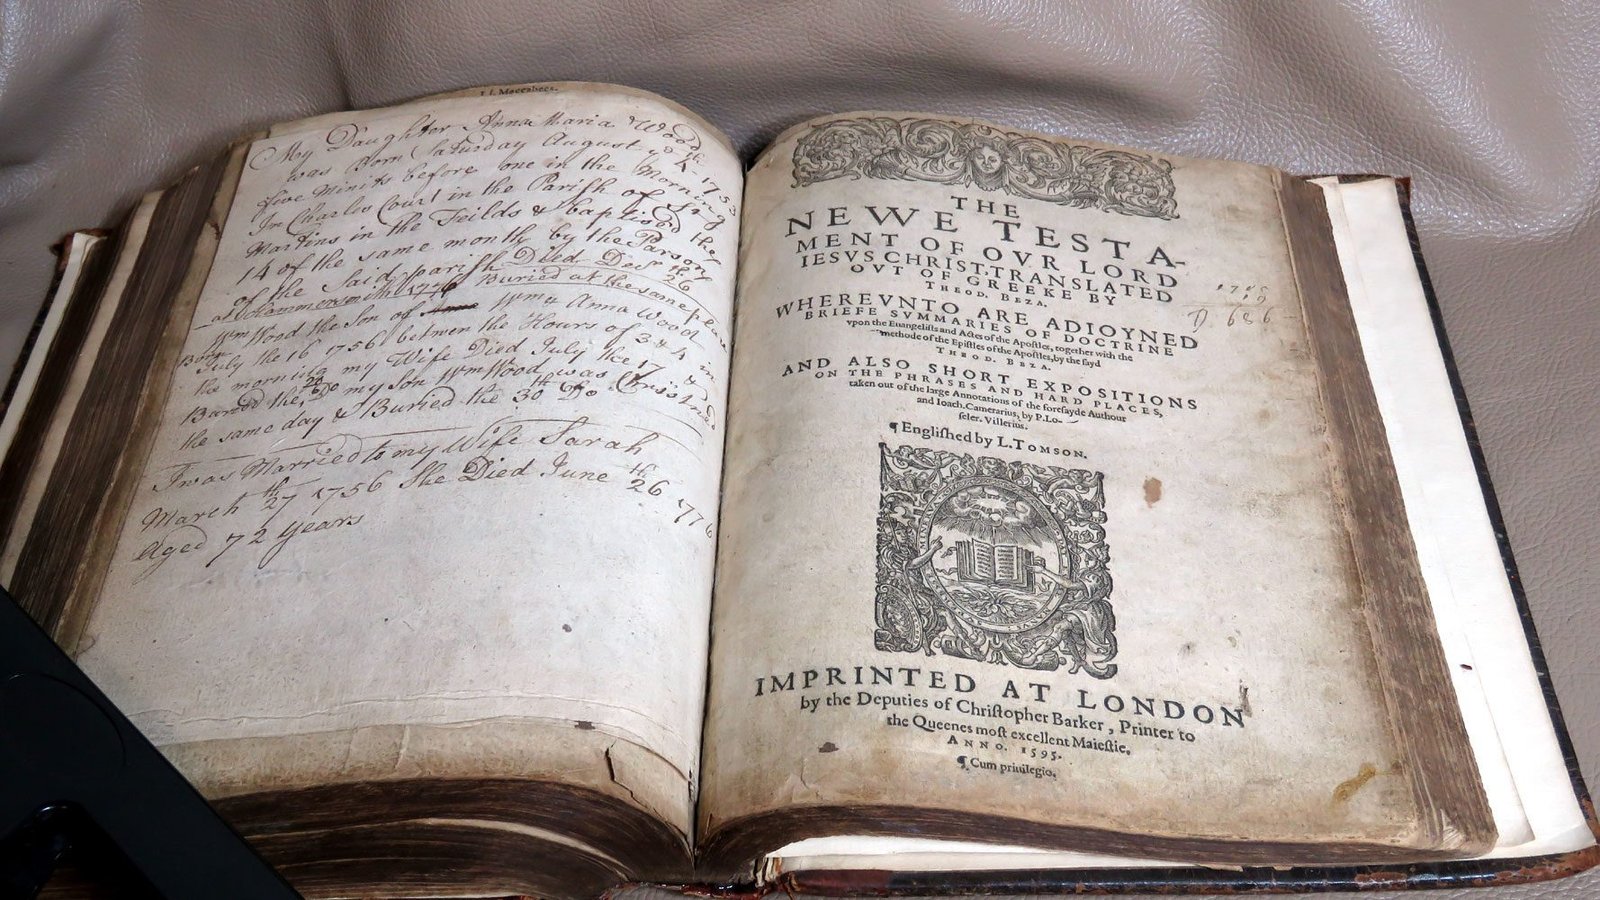 I I. Maccabees.
My Daughter Anna Maria Wood
was Born Saturday August ye 4th 1753
five Minits before one in the Morning
In Charles Court in the Parish of St
Martins in the Feilds & baptised the
14 of the same month by the Parson
of the Said parish Died Decr th 26
at Hammersmith 1756 Buried at the same place
Wm Wood the Son of Wm & Anna Wood
Born July the 16 1756 betwen the Hours of 3 & 4 in
the morning my Wife Died July the 17 &
Buried the Do my Son Wm Wood was Cristned
the same day & Buried the 30th Do
I was Married to my Wife Sarah
March 27th 1756 She Died June 26th 1776
Aged 72 Years
THE
NEWE TESTA-
MENT OF OVR LORD
IESVS CHRIST, TRANSLATED
OVT OF GREEKE BY
THEOD. BEZA.
WHEREVNTO ARE ADIOYNED
BRIEFE SVMMARIES OF DOCTRINE
vpon the Euangeliſts and Actes of the Apoſtles, together with the
methode of the Epiſtles of the Apoſtles, by the ſayd
THEOD. BEZA.
AND ALSO SHORT EXPOSITIONS
ON THE PHRASES AND HARD PLACES,
taken out of the large Annotations of the foreſayde Authour
and Ioach. Camerarius, by P. Lo-
ſeler. Villerius.
¶ Engliſhed by L. TOMSON.
IMPRINTED AT LONDON
by the Deputies of Chriſtopher Barker, Printer to
the Queenes moſt excellent Maieſtie.
ANNO. 1595.
¶ Cum priuilegio.